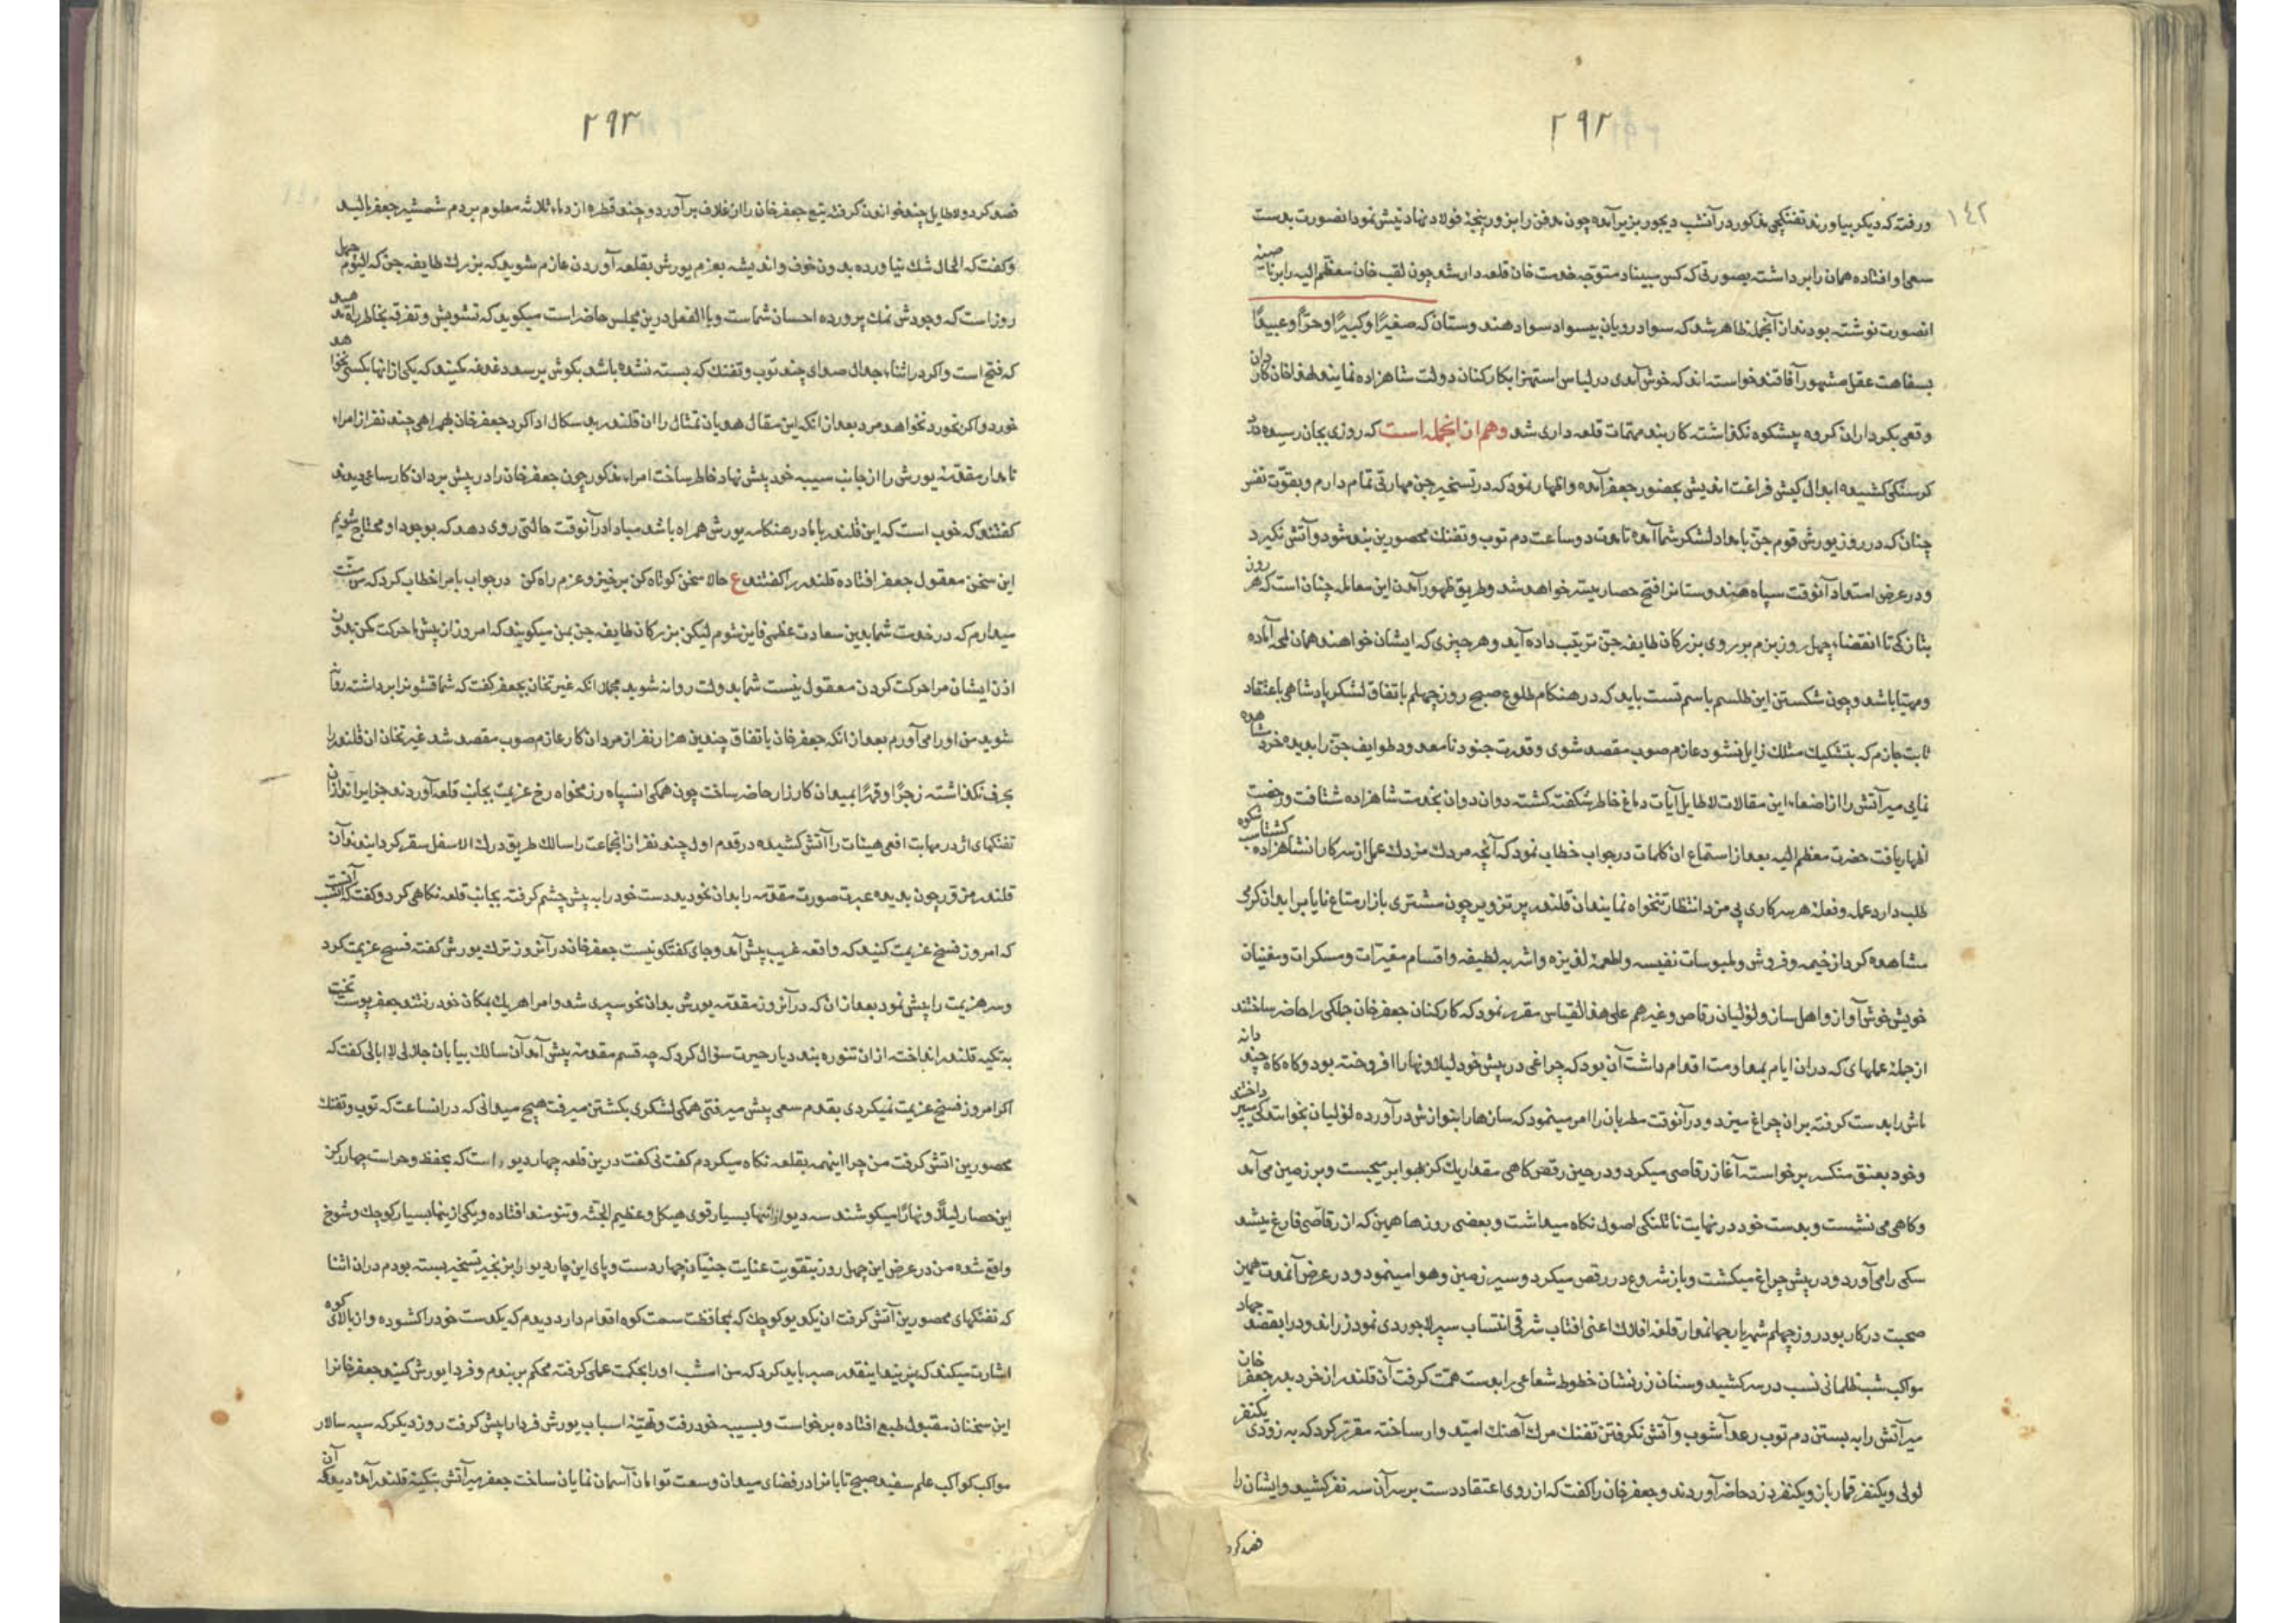 ۲۹۲
۱۴۲
ورفته که دیکر بیاورند تفنکچی مذکور در آنشب دیجور بزیر آمده چون مدفن را بزور پنجهٔ فولاد نهاد نبش نمود انصورت بدست
سعی او افتاده همان را برداشته بصورتی که کس مبیناد متوجه خدمت خان قلعه دار شد چون لقب خان معظم الیه را بر ناصیه
انصورت نوشته بودند از آنجمله ظاهر شد که سواد رویان بیسواد سواد هندوستان که صغیرًا و کبیرًا و حرًّا و عبیدًا
بسفاهت عقل مشهور آفاقند خواسته اند که خوش آمدی در لباس استهزا بکارکنان دولت شاهزاده نمایند لهذا خان کاردان
وقعی بکردار ان کروه بیشکوه نکذاشته کاربند مهمات قلعه داری شد وهم از انجمله است که روزی بجان رسیده درد
کرسنکی کشیده ابدال کیش فراغت اندیش بحضور جعفر آمده واظهار نمود که در تسخیر جن مهارتی تمام دارم وبقوّت نفس
چنان که در روز یورش قوم جن بامداد لشکر شما آمده تا مدت دو ساعت دم توپ وتفنك محصورین بند شود و آتش نکیرد
ودر عرض استعداد آنوقت سپاه هندوستانرا فتح حصار میسّر خواهد شد وطریق ظهور آمدن این معامله چنان است که هر روز
بتازکی تا انقضاء چهل روز بزم بر روی بزرکان طایفه جن ترتیب داده آید وهر چیزی که ایشان خواهند همان لمحه آماده
ومهیا باشد وچون شکستن این طلسم باسم تست باید که در هنکام طلوع صبح روز چهلم باتفاق لشکر پادشاهی باعتقاد
ثابت جازم که بتشکیك مشکك زایل نشود عازم صوب مقصد شوی وقدرت جنود نامعدود طوایف جن را بدیده خرد مشاهده
نمایی میر آتش را از اصغاء این مقالات لاطایل آیات دماغ خاطر شکفت کشته دوان دوان بخدمت شاهزاده شتافت ورخصت
اظهار یافت حضرت معظم الیه بعد از استماع ان کلمات در جواب خطاب نمود که آنچه مردك مزدك عمل از سرکار انشاهزاده کشتاسب شکوه
طلب دارد عمله وفعلهٔ هر سرکاری پی مزد انتظار تنخواه نمایند ان قلندر پر تزویر چون مشتری بازار متاع نایابرا بدان کرمی
مشاهده کرد از خیمه و فروش وملبوسات نفیسه واطعمهٔ لذیزه واشربه لطیفه واقسام مغیّرات ومسکرات ومغنیان
خویش خوش آواز واهل ساز ولولیان رقاص وغیرهم علی هذا القیاس مقرر نمود که کارکنان جعفرخان جلکی را حاضر ساختند
از جمله عملهای که در ان ایام بمداومت اقدام داشت آن بود که چراغی در پیش خود لیلا ونهارا افروخته بود وکاه کاه چند دانه
ماش را بدست کرفته بر ان چراغ میزد ودر آنوقت مطربان را امر مینمود که سازها را بنوازش در آورده لولیان بخوانندکی پرداختند
وخود بعنق منکسر برخواسته آغاز رقاصی میکرد ودر حین رقص کاهی مقدار یك کز بهوا بر میجست وبر زمین می آمد
وکاهی می نشست وبدست خود در نهایت نا تلنکی اصول نکاه میداشت وبعضی روزها همین که از رقاصی فارغ میشد
سکی را می آورد ودر پیش چراغ میکشت وباز شروع در رقص میکرد وسیر زمین وهوا مینمود ودر عرض آنمدت همین
صحبت در کار بود روز چهلم شهریار جهاندار قلعه افلاك اعنی افتاب شرقی انتساب سپر لاجوردی نمود زراند ودرا بقصد جهاد
مواکب شب ظلمانی نسب در سر کشید وسنان زرنشان خطوط شعاعی را بدست همّت کرفت آن قلندر از خرد بدر جعفرخان
میر آتش را به بستن دم توپ رعد آشوب و آتش نکرفتن تفنك مرك آهنك امیدوار ساخته مقرّر کرد که به زودی یکنفر
لولی ویکنفر قمارباز ویکنفر دزد حاضر آوردند وجعفرخان را کفت که از روی اعتقاد دست بر سر آن سه نفر کشید وایشان را
قصد کرد
۲۹۳
قصد کرد ولاطایل چند خواندن کرفته تیغ جعفرخان را از غلاف بر آورد وچند قطره از دماء ثلاثه معلوم بر دم شمشیر جعفر بالید
وکفت که الحال شك نیاورده بدون خوف واندیشه بعزم یورش بقلعه آوردن عازم شوید که بزرك طایفه جن که الیوم چهل
روز است که وجودش نمك پرورده احسان شماست وبالفعل درین مجلس حاضر است میکوید که تشویش وتفرقه بخاطر راه ندهید
که فتح است واکر در اثناء جدال صدای چند توپ وتفنك که بسته نشده باشد بکوش برسد دغدغه مکنید که یکی از انها بکسی نخواهد
خورد واکر بخورد نخواهد مرد بعد از انکه این مقال هذیان تمثال را ان قلندر بد سکال ادا کرد جعفرخان بهمراهی چند نفر از امراء
نامدار مقدّمه یورش را از جانب سیبه خود پیش نهاد خاطر ساخت امراء مذکور چون جعفرخان را در پیش بردان کار ساعی دیدند
کفتند که خوب است که این قلندر باما در هنکامه یورش همراه باشد مبادا در آنوقت حالتی روی دهد که بوجود او محتاج شویم
این سخن معقول جعفر افتاده قلندر را کفتند ع حالا سخن کوتاه کن برخیز وعزم راه کن در جواب بامرا خطاب کرد که من منّت
میدارم که در خدمت شما بدین سعادت عظمی فایز شوم لیکن بزرکان طایفه جن بمن میکویند که امروز از پیش ما حرکت مکن بدون
اذن ایشان مرا حرکت کردن معقول نیست شما بدولت روانه شوید مجملا انکه غیرتخان بجعفر کفت که شما قشونرا برداشته روانه
شوید من او را می آورم بعد از انکه جعفرخان باتفاق چندین هزار نفر از مردان کار عازم صوب مقصد شد غیرتخان ان قلندر را
بحرفی نکذاشته زجرًا وقهرًا بمیدان کارزار حاضر ساخت چون همکی انسپاه رزمخواه رخ عزیمت بجلب قلعه آوردند جزایراندازان
تفنکهای اژدر مهابت افعی هیئات را آتش کشیده در قدم اول چند نفر از انجماعت را سالك طریق درك الاسفل سقر کردایندند آن
قلندر مزوّر چون بدیده عبرت صورت مقدّمه را بدان نحو دید دست خود را به پیش چشم کرفته بجانب قلعه نکاهی کرد وکفت که آنست
که امروز فسخ عزیمت کنید که واقعه غریب پیش آمد وجای کفتکو نیست جعفرخان در آنروز ترك یورش کفته فسخ عزیمت کرد
وسر هزیمت را پیش نمود بعد از ان که در آنروز مقدّمه یورش بدان نحو سپری شد وامرا هر یك بمکان خود رفتند جعفر پوست تخت
به تکیه قلندر انداخته از ان تنوره بند دیار حیرت سؤال کرد که چه قسم مقدمه پیش آمد آن سالك بیابان جلالی لا ابالی کفت که
اکر امروز فسخ عزیمت نمیکردی بقدم سعی پیش میرفتی همکی لشکری بکشتن میرفت هیچ میدانی که در انساعت که توپ وتفنك
محصورین اتش کرفت من چرا اینهمه بقلعه نکاه میکردم کفت نی کفت درین قلعه چهار دیو است که بحفظ وحراست چهار رکن
این حصار لیلاً ونهارًا میکوشند سه دیو از انها بسیار قوی هیکل وعظیم الجثّه وتنومند افتاده ویکی از ینها بسیار کوچك وشوخ
واقع شده من در عرض این چهل روز بتقویت عنایت جنیّان چهار دست وپای این چار دیو را بزنجیر تسخیر بسته بودم در ان اثنا
که تفنکهای محصورین آتش کرفت ان یکدیو کوچك که بمحافظت سمت کوه اقدام دارد دیدم که یکدست خود را کشوده واز بالای کوه
اشارت میکند که بزنید اینقدر صبر باید کرد که من امشب او را بحکمت عملی کرفته محکم بربندم وفردا یورش کنید جعفرخانرا
این سخنان مقبول طبع افتاده برخواست وبسیبه خود رفت وتهیّهٔ اسباب یورش فردا را پیش کرفت روز دیکر که سپه سالار
مواکب کواکب علم سفید صبح تابانرا در فضای میدان وسعت توامان آسمان نمایان ساخت جعفر میر آتش بتکیهٔ قلندر آمد دید که آن